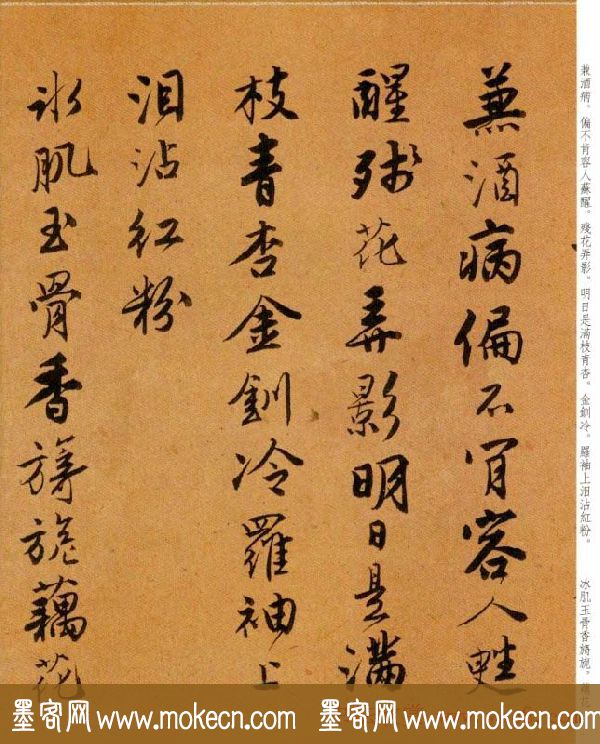 兼酒病。偏不肯容人蘇醒。殘花弄影。明日是滿枝青杏。金釧冷。羅袖上泪沾紅粉。
冰肌玉骨香旖旎。藕花
兼酒病偏不肯容人甦
醒殘花弄影明日是滿
枝青杏金釧冷羅袖上
泪沾紅粉
冰肌玉骨香旖旎藕花
墨客网 www.mokecn.com 墨客网 www.mokecn.com